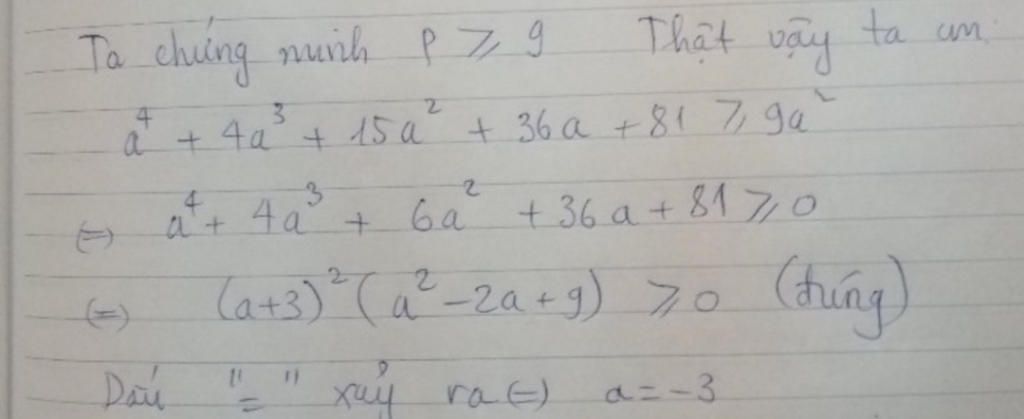 Ta chứng minh P ⩾ 9 Thật vậy ta cm
a⁴ + 4a³ + 15a² + 36a + 81 ⩾ 9a²
(=) a⁴ + 4a³ + 6a² + 36a + 81 ⩾ 0
(=) (a+3)² (a² - 2a + 9) ⩾ 0 (đúng)
Dấu "=" xảy ra (=) a = -3